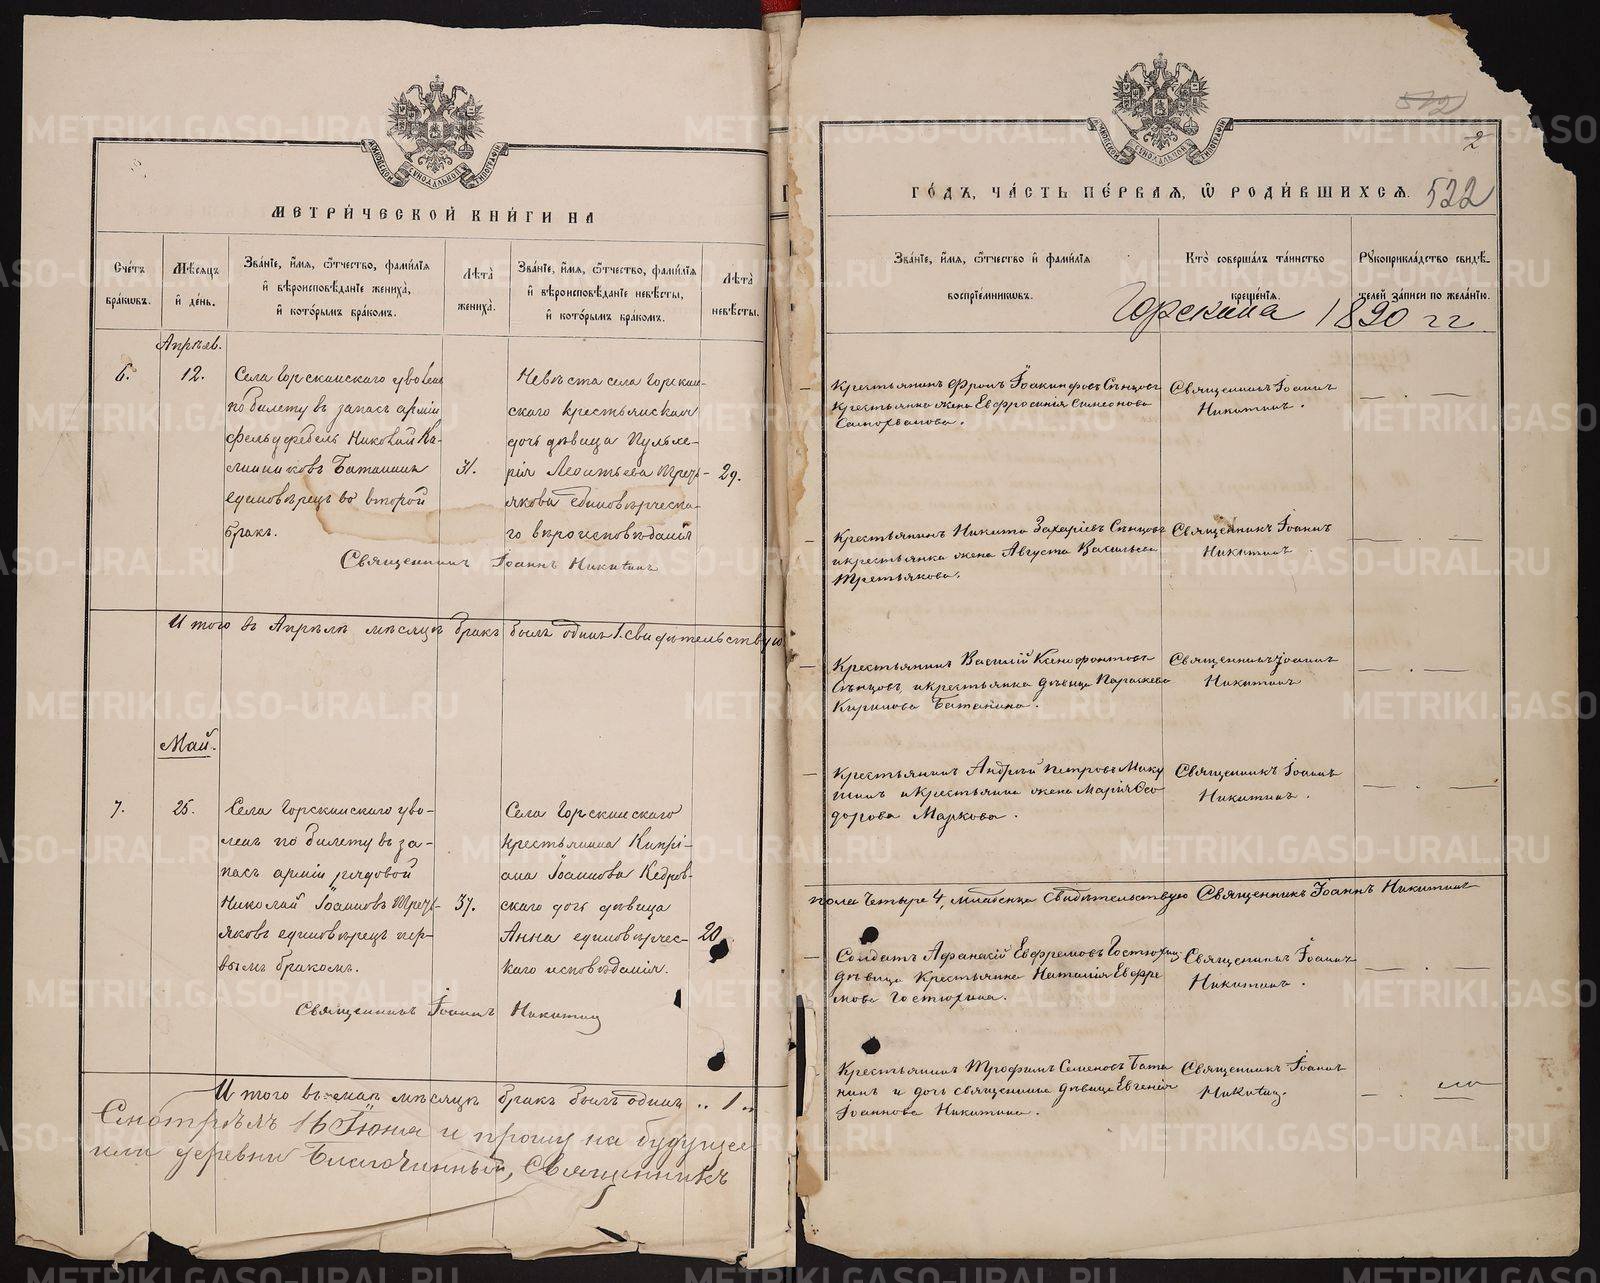 МЕТРИ́ЧЕСКОЙ КНИ́ГИ НА
Счётъ бра́ковъ.
Мѣ́сяцъ и де́нь.
Зва́нїе, и҆́мя, ѻ҆́тчество, фами́лїя и҆ вѣроисповѣ́данїе жениха̀, и҆ кото́рымъ бра́комъ.
Лѣ́та жениха̀.
Зва́нїе, и҆́мя, ѻ҆́тчество, фами́лїя и҆ вѣроисповѣ́данїе невѣ́сты, и҆ кото́рымъ бра́комъ.
Лѣ́та невѣ́сты.
Апрѣль.
12.
Села Горскинскаго уволен
по билету въ запасъ арміи
фельдфебель Николай Ка-
линниковъ Батанинъ
единовѣрецъ во второй
бракъ.
31.
Невѣста села Горскин-
скаго крестьянская
дочь дѣвица Пульхе-
рія Леонтьева Треть-
якова единовѣрческа-
го вѣроисповѣданія
29.
Священникъ Іоаннъ Никитинъ
Итого въ Апрѣлѣ мѣсяцѣ бракъ былъ одинъ 1. свидѣтельствую
Май.
7.
25.
Села Горскинскаго уво-
ленъ по билету въ за-
пасъ арміи рядовой
Николай Іоанновъ Треть-
яковъ единовѣрецъ пер-
вымъ бракомъ.
37.
Села Горскинскаго
крестьянина Кипрі-
ана Іоаннова Кедров-
скаго дочь дѣвица
Анна единовѣрчес-
каго исповѣданія.
20
Священникъ Іоаннъ Никитин
Итого въ маѣ мѣсяцѣ бракъ былъ одинъ .. 1 ..
Смотрѣлъ 16 Іюня и прошу на будущее
или деревни Благочинный, Священникъ
522
2
ГО́ДЪ, ЧА́СТЬ ПЕ́РВАЯ, Ѽ РОДИ́ВШИХСѦ.
522
Зва́нїе, и҆́мя, ѻ҆́тчество и҆ фами́лїя воспрїе́мниковъ.
Кто̀ соверша́лъ та́инство креще́нїя.
Рꙋкоприкла́дство свидѣ́телей за́писи по жела́нїю.
Горскина 1890 гг
Крестьянинъ Фролъ Іоакинфовъ Сѣнцовъ
Крестьянка жена Евфросинія Симеонова
Самохвалова.
Священникъ Іоаннъ
Никитинъ.
Крестьянинъ Никита Захаріевъ Сѣнцовъ
и крестьянка жена Августа Васильева
Третьякова.
Священникъ Іоаннъ
Никитинъ
Крестьянинъ Василій Ксенофонтовъ
Сѣнцовъ, и крестьянка дѣвица Параскева
Кирилова Батанина.
Священникъ Іоаннъ
Никитинъ
Крестьянинъ Андрей Петровъ Мику
шинъ и крестьянина жена Марія Ѳео
дорова Маркова.
Священникъ Іоаннъ
Никитинъ.
пола Четыре 4, младенца Свидѣтельствую Священникъ Іоаннъ Никитинъ
Солдатъ Афанасій Евфремовъ Гостюхин
дѣвица Крестьянка Наталія Евфре
мова Гостюхина.
Священникъ Іоаннъ
Никитинъ.
Крестьянинъ Трофимъ Семеновъ Бата
нинъ и дочь священника дѣвица Евгенія
Іоаннова Никитина.
Священникъ Іоаннъ
Никитин.